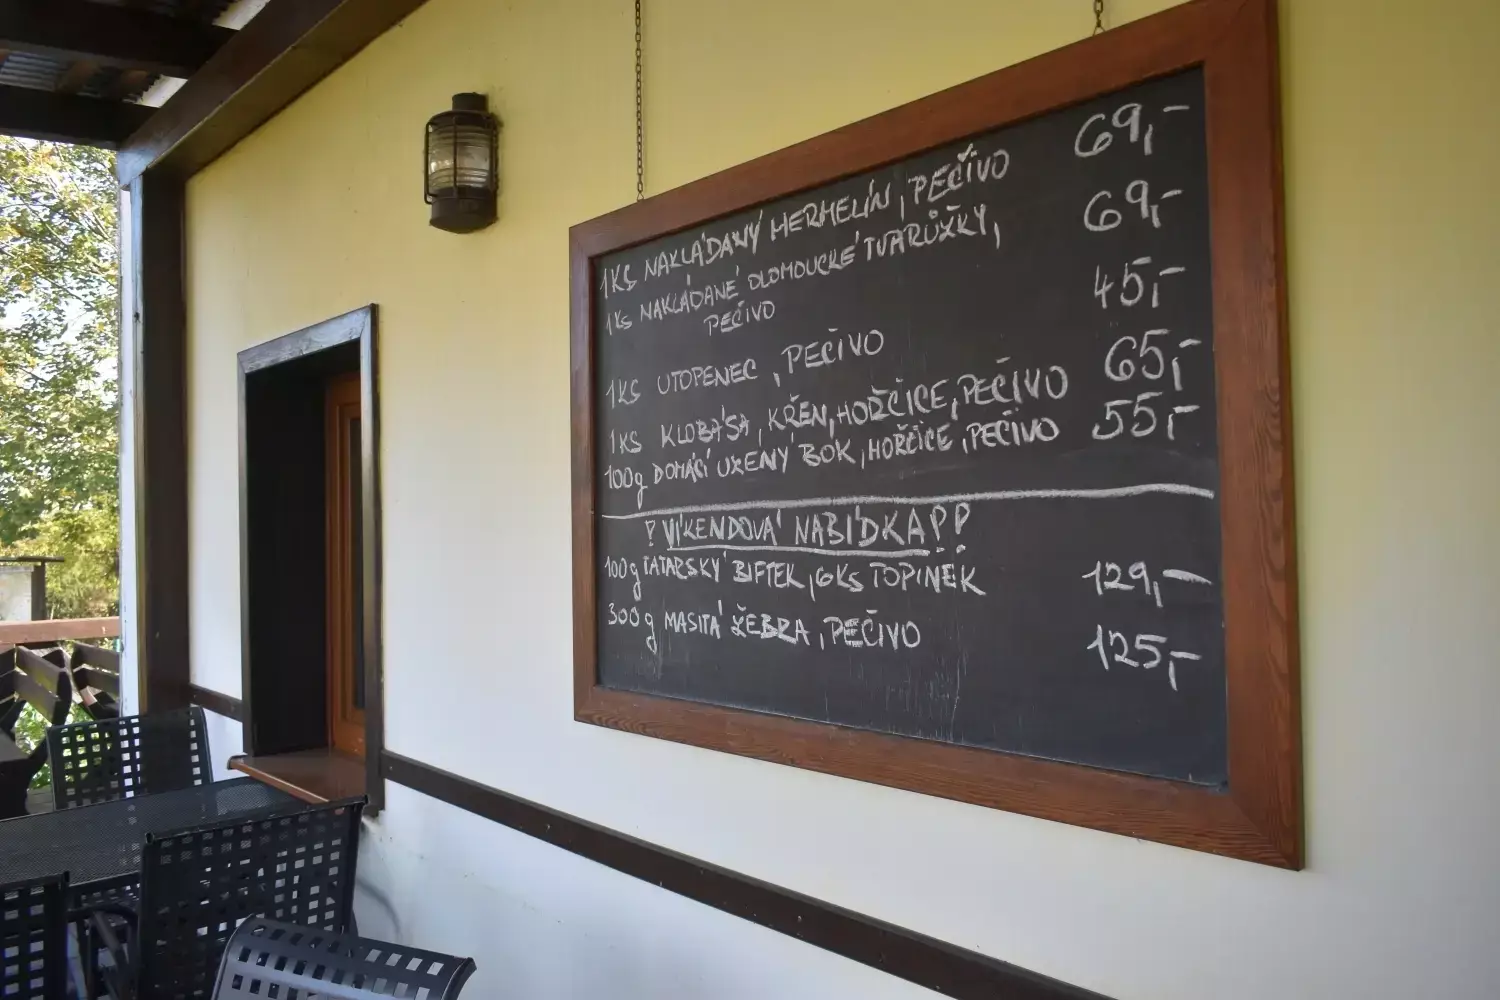 1KS NAKLÁDANÝ HERMELÍN, PEČIVO 69,-
1KS NAKLÁDANÉ OLOMOUCKÉ TVARŮŽKY, 69,-
PEČIVO
1KS UTOPENEC, PEČIVO 45,-
1KS KLOBÁSA, KŘEN, HOŘČICE, PEČIVO 65,-
100g DOMÁCÍ UZENÝ BOK, HOŘČICE, PEČIVO 55,-
! VÍKENDOVÁ NABÍDKA!!
100g TATARSKÝ BIFTEK, 6KS TOPINEK 129,-
300g MASITÁ ŽEBRA, PEČIVO 125,-